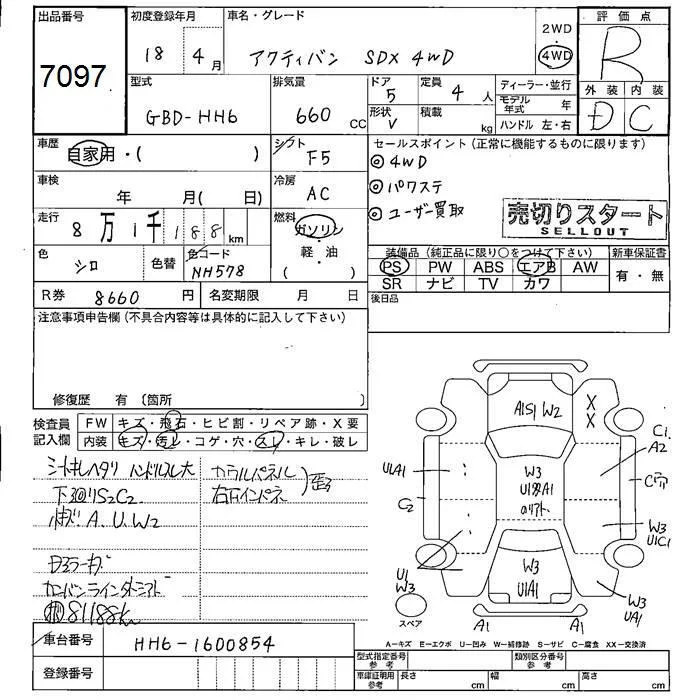 出品番号
7097
初度登録年月
18 4月
車名・グレード
アクティバン SDX 4WD
2WD
4WD
評価点
R
外装 内装
D C
型式
GBD-HH6
排気量
660 CC
ドア
5
定員
4 人
形状
V
積載
kg
ディーラー・並行
モデル年式 年
ハンドル 左・右
車歴
自家用・( )
シフト
F5
セールスポイント(正常に機能するものに限ります)
◎4WD
◎パワステ
◎ユーザー買取
売切りスタート
SELLOUT
車検
年 月( 日)
冷房
AC
走行
8万1千188km
燃料
ガソリン
軽・油
( )
色
シロ
色替
色コード
NH578
装備品(純正品に限り○をつけて下さい)
PS PW ABS エアB AW
SR ナビ TV カワ
新車保証書
有・無
R券 8660円
名変期限 月 日
後日品
注意事項申告欄(不具合内容等は具体的に記入して下さい)
修復歴 有〔箇所 〕
検査員記入欄
FW キズ・飛石・ヒビ割・リペア跡・X要
内装 キズ・汚レ・コゲ・穴・スレ・キレ・破レ
シートキレヘタリ ハンドルスレ大
下廻リS2C2
A.U.W2
カウルパネル
右Fインパネ
歪
81188km
車台番号
HH6-1600854
登録番号
A1S1 W2
X
X
C1
A2
U1A1
C穴
W3
C2
W3
W3
U1C1
U1
W3
W3
U1A1
W3
UA1
スペア
A1
A1
A=キズ E=エクボ U=凹み W=補修跡 S=サビ C=腐食 XX=交換済
型式指定番号
参考
類別区分番号
参考
車庫証明用
参考
長さ cm
幅 cm
高さ cm